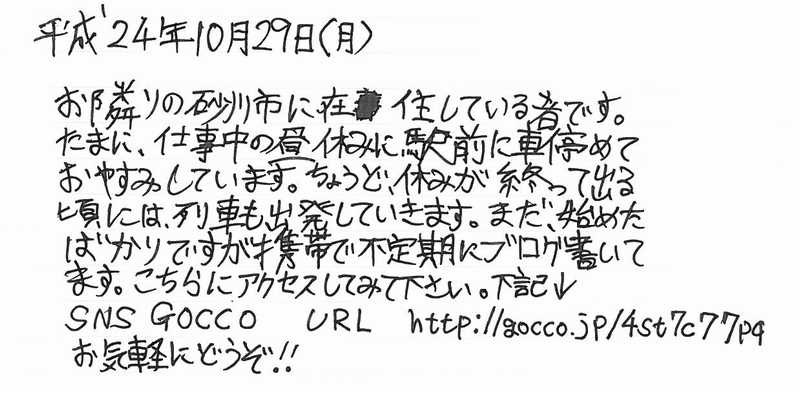 平成24年10月29日(月)
お隣りの砂川市に在住している者です。
たまに、仕事中の昼休みに駅前に車停めて
おやすみしています。ちょうど、休みが終って出る
頃には、列車も出発していきます。まだ、始めた
ばかりですが携帯で不定期にブログ書いて
ます。こちらにアクセスしてみて下さい。下記↓
SNS GOCCO URL http://gocco.jp/4st7c77pq
お気軽にどうぞ!!